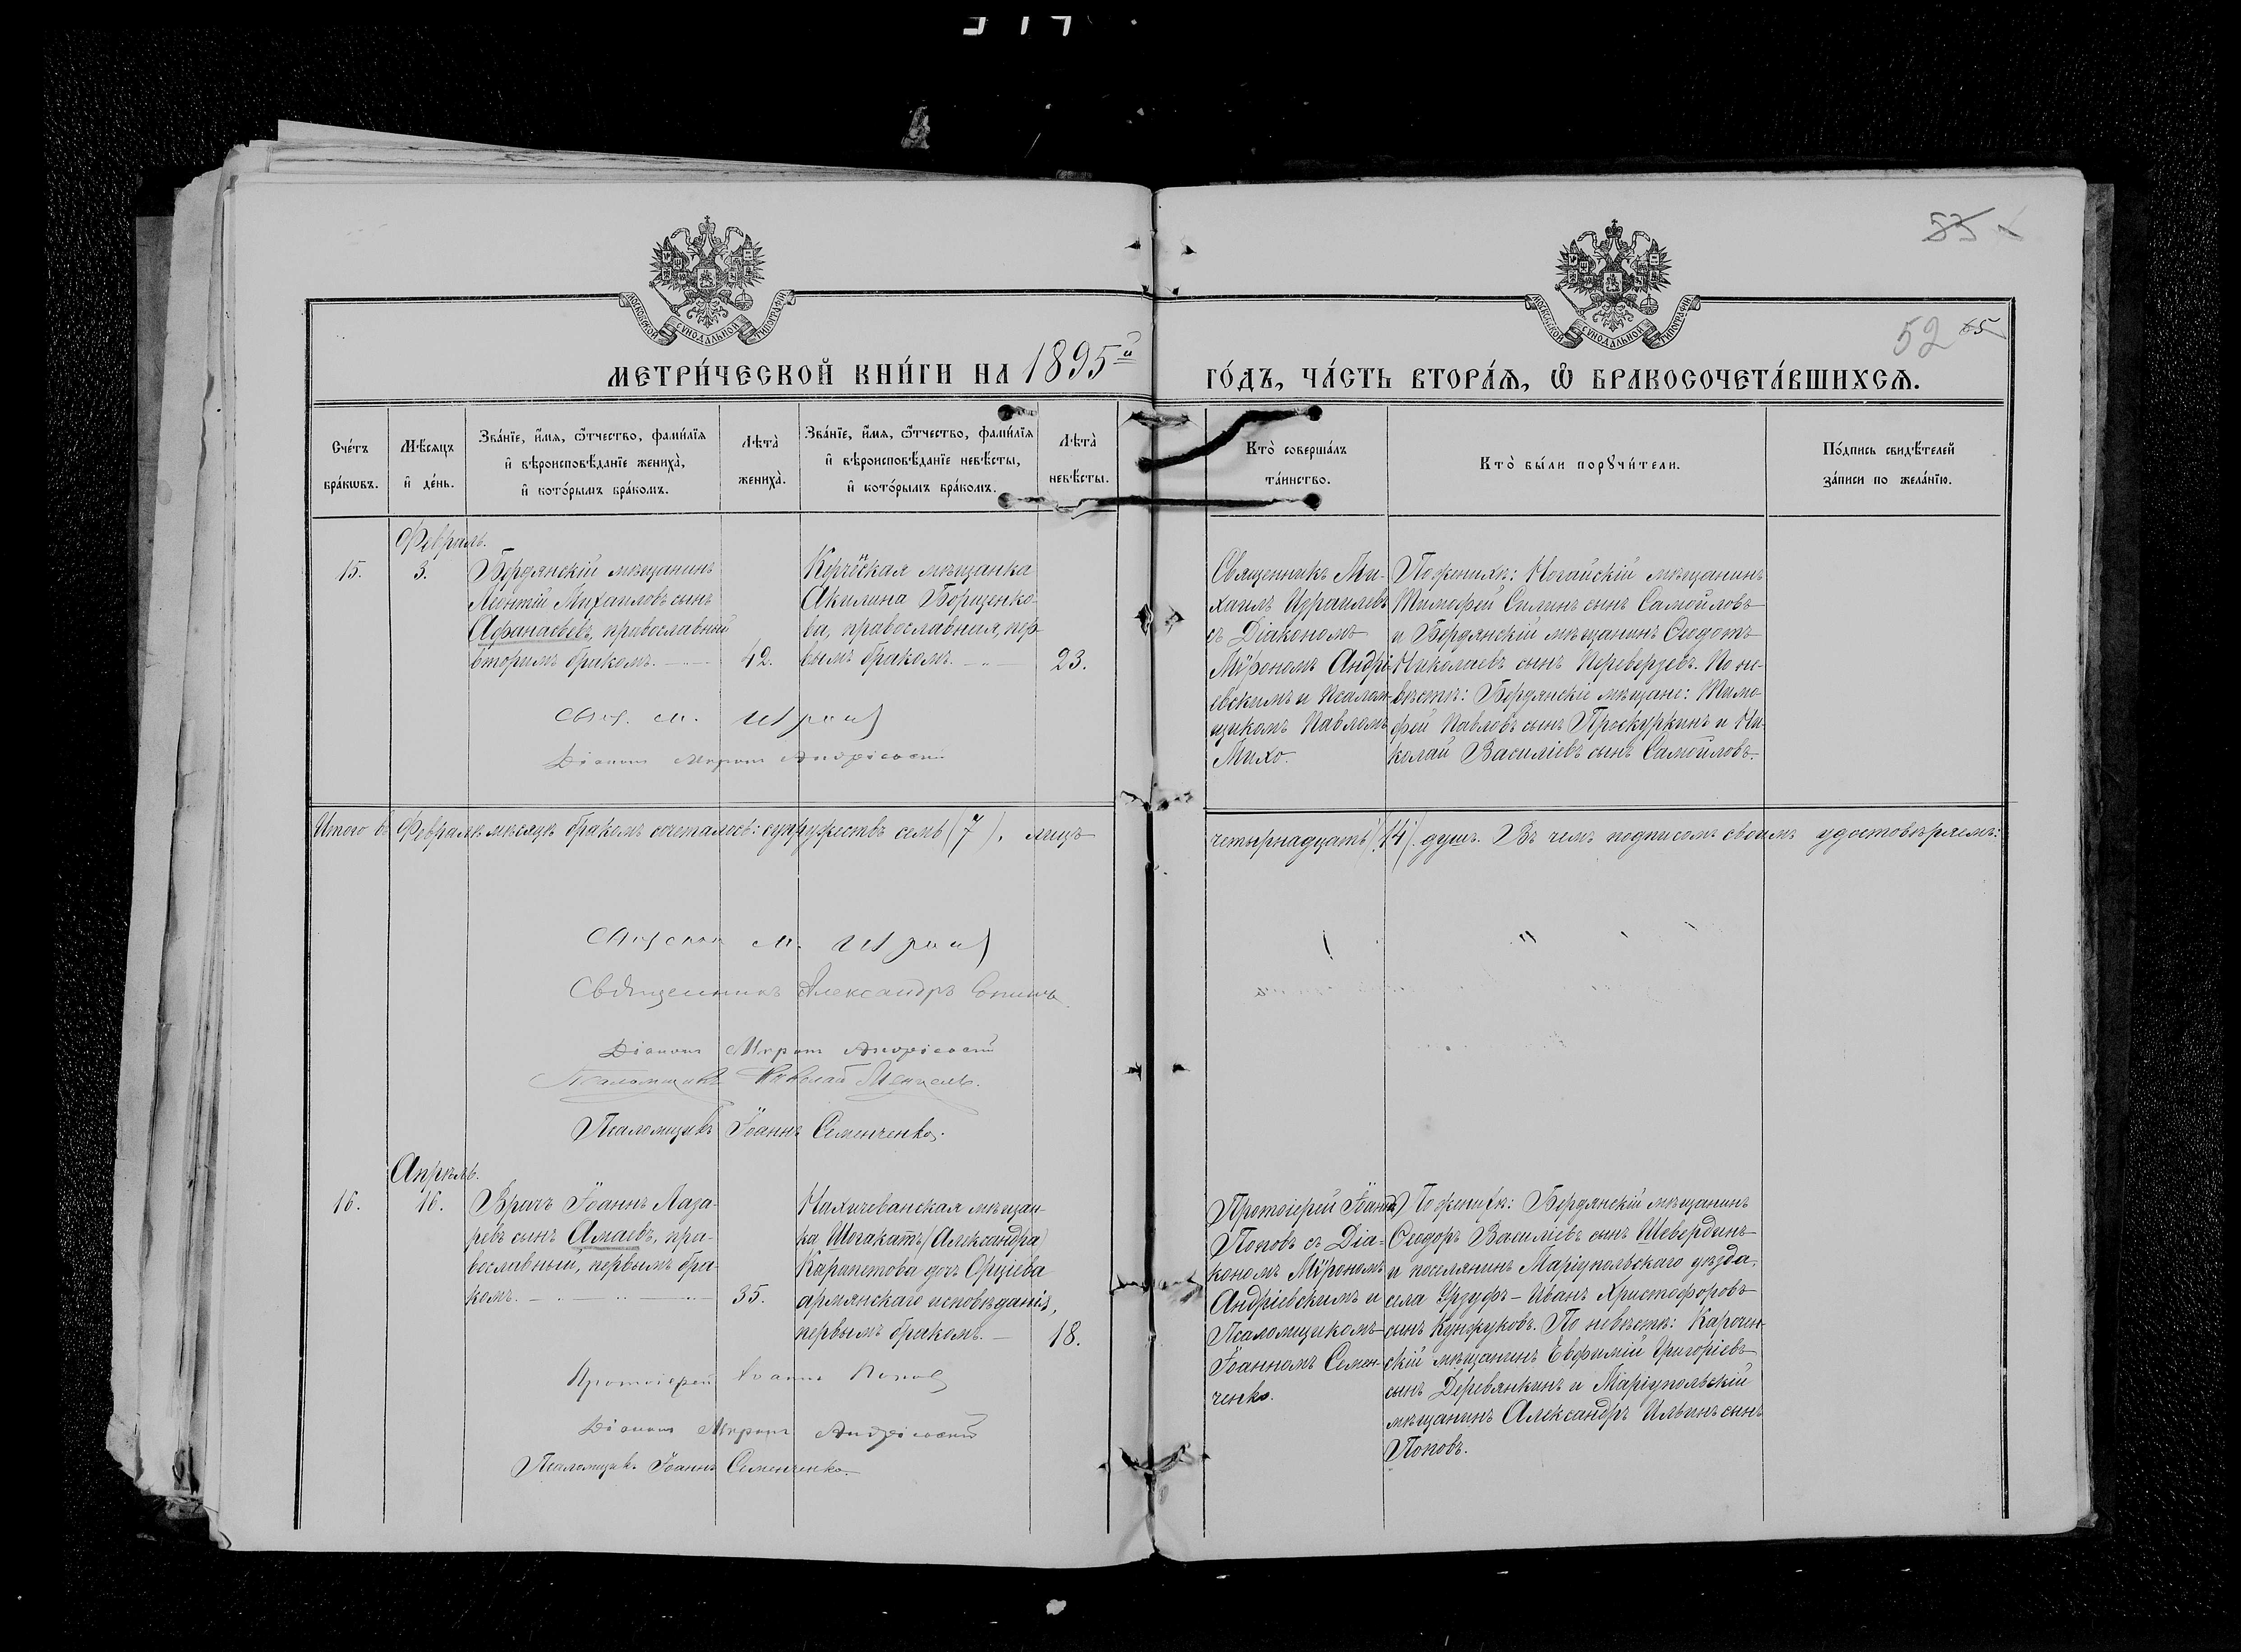 53
52 65
МОСКОВСКОЙ СѴНОДАЛЬНОЙ ТИПОГРАФІИ
МОСКОВСКОЙ СѴНОДАЛЬНОЙ ТИПОГРАФІИ
МЕТРИ́ЧЕСКОЙ КНИ́ГИ НА 1895й
ГО́ДЪ, ЧА́СТЬ ВТОРА́Ѧ, Ѽ БРАКОСОЧЕТА́ВШИХСѦ.
Сче́тъ
бра́кѡвъ.
Мѣ́сѧцъ
и҆ де́нь.
Зва́нїе, и҆́мѧ, ѻ҆́тчество, фами́лїѧ
и҆ вѣроисповѣ́данїе жениха̀,
и҆ кото́рымъ бра́комъ.
Лѣта̀
жениха̀.
Зва́нїе, и҆́мѧ, ѻ҆́тчество, фами́лїѧ
и҆ вѣроисповѣ́данїе невѣ́сты,
и҆ кото́рымъ бра́комъ.
Лѣта̀
невѣ́сты.
Кто̀ соверша́лъ
та́инство.
Кто̀ бы́ли порꙋчи́тели.
По́дпись свидѣ́телей
за́писи по жела́нїю.
Февраль.
15.
3.
Бердянскій мѣщанинъ
Леонтій Михаиловъ сынъ
Афанасьевъ, православный
вторымъ бракомъ.
42.
Керченская мѣщанка
Акилина Борщенко-
ва, православная, пер-
вымъ бракомъ.
23.
Священникъ Ми-
хаилъ Израилевъ
съ Діакономъ
Мѵрономъ Андрі-
евскимъ и Псалом-
щикомъ Павломъ
Михо.
По женихѣ: Ногайскій мѣщанинъ
Тимофей Силинъ сынъ Самойловъ
и Бердянскій мѣщанинъ Ѳеодотъ
Николаевъ сынъ Переверзевъ. По не-
вѣстѣ: Бердянскіе мѣщане: Тимо-
фей Павловъ сынъ Проскуркинъ и Ни-
колай Василіевъ сынъ Самойловъ.
Свящ. М.
Діаконъ Миронъ Андріевскій
Итого въ Февралѣ мѣсяцѣ бракомъ сочеталось: супружествъ семь (7), лицъ
четырнадцать (14) душъ. Въ чемъ подписомъ своимъ удостовѣряемъ:
Священникъ М.
Священникъ Александръ
Діаконъ Миронъ Андріевскій
Псаломщикъ Николай
Псаломщикъ Іоаннъ Семенченко.
Апрѣль.
16.
16.
Врачъ Іоаннъ Лаза-
ревъ сынъ Амаевъ, пра-
вославный, первымъ бра-
комъ.
35.
Нахичеванская мѣщан-
ка Шогакатъ (Александра)
Карапетова дочь Орціева
армянскаго исповѣданія,
первымъ бракомъ.
18.
Протоіерей Іоаннъ
Поповъ съ Діа-
кономъ Мѵрономъ
Андріевскимъ и
Псаломщикомъ
Іоанномъ Семен-
ченко.
По женихѣ: Бердянскій мѣщанинъ
Ѳеодоръ Василіевъ сынъ Шевердинъ
и поселянинъ Маріупольскаго уѣзда,
села Урзуфъ - Иванъ Христофоровъ
сынъ Кунжуковъ. По невѣстѣ: Карочен-
скій мѣщанинъ Евфимій Григоріевъ
сынъ Деревянкинъ и Маріупольскій
мѣщанинъ Александръ Ильинъ сынъ
Поповъ.
Протоіерей Іоаннъ Поповъ
Діаконъ Миронъ Андріевскій
Псаломщикъ Іоаннъ Семенченко.